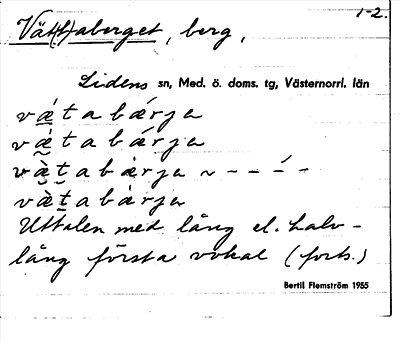 Vät(t)aberget, berg, 1-2.
Lidens sn, Med. ö. doms. tg, Västernorrl. län
vǽtabǽrja
vǽtabǽrja
væ̀tabærja ~ – – –́ –
væ̀tabærja
Uttalen med lång el. halv-
lång första vokal (forts.)
Bertil Flemström 1955